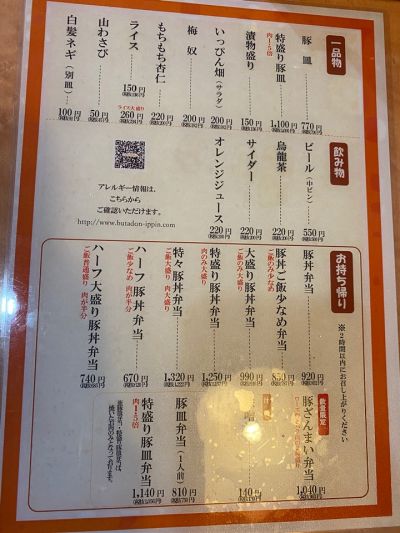 一品物
豚皿
770円
特盛り豚皿
肉1.5倍
1,100円
漬物盛り
150円
いっぴん畑（サラダ）
200円
梅奴
200円
もちもち杏仁
220円
ライス
150円
ライス大盛り
260円
山わさび
50円
白髪ネギ（別皿）
100円
飲み物
ビール（中ビン）
550円
烏龍茶
220円
サイダー
220円
オレンジジュース
220円
アレルギー情報は、
こちらから
ご確認いただけます。
http://www.butadon-ippin.com
お持ち帰り
※2時間以内にお召し上がりください
豚丼弁当
920円
豚丼ご飯少なめ弁当
ご飯のみ少なめ
850円
大盛り豚丼弁当
ご飯のみ大盛り
990円
特盛り豚丼弁当
肉のみ大盛り
1,250円
特々豚丼弁当
ご飯大盛り 肉大盛り
1,320円
ハーフ豚丼弁当
ご飯少なめ 肉が半分
670円
ハーフ大盛り豚丼弁当
ご飯普通盛り 肉が半分
740円
数量限定
豚ざんまい弁当
1,040円
140円
豚皿弁当（1人前）
810円
特盛り豚皿弁当
肉1.5倍
1,140円